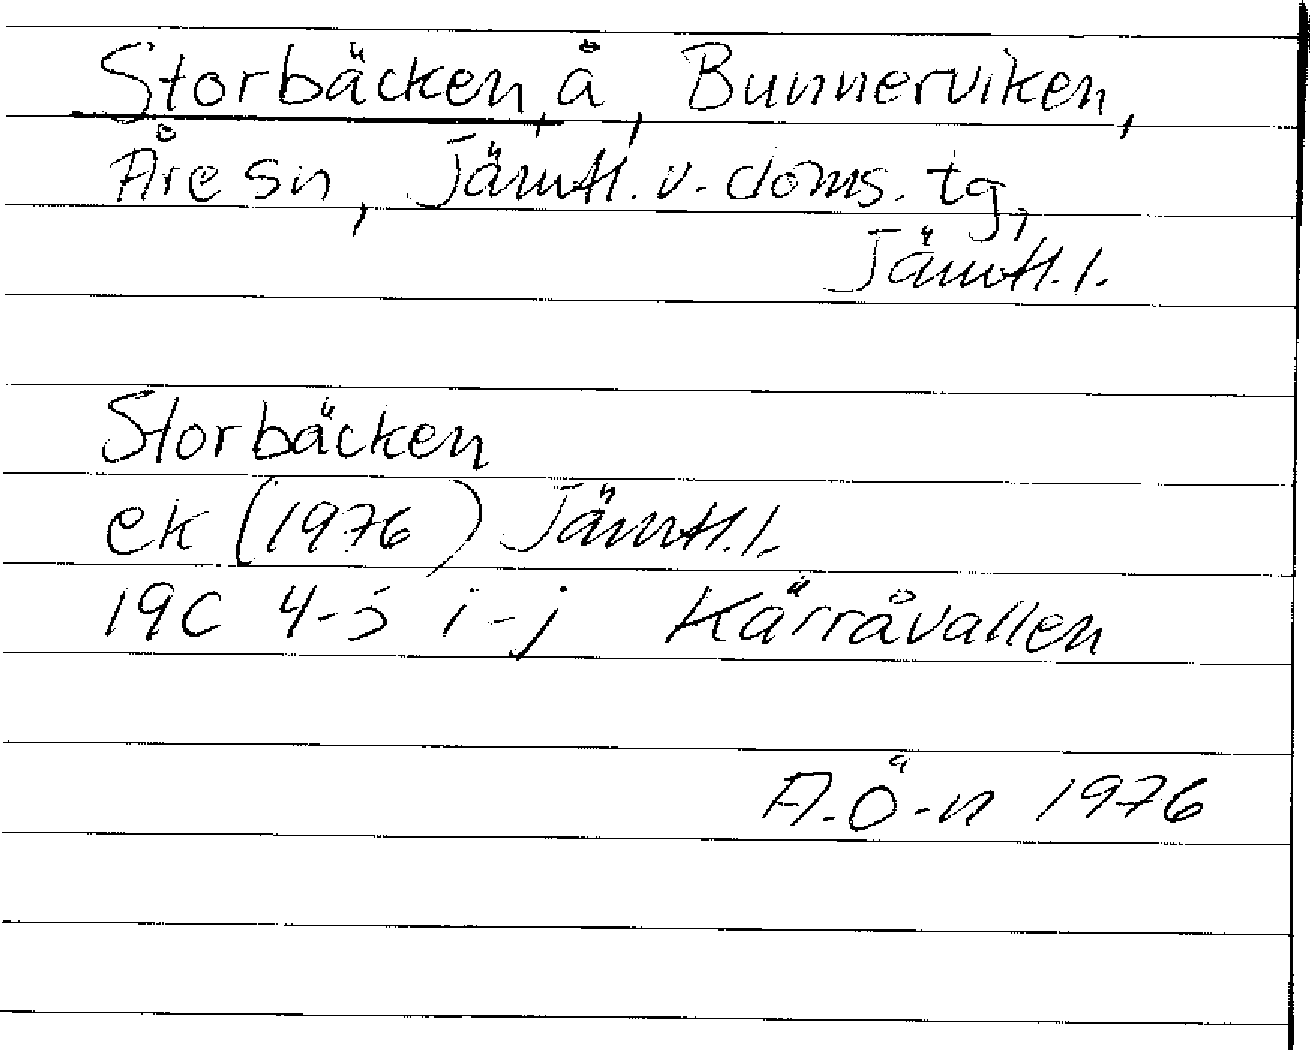 Storbäcken, å, Bunnerviken,
Åre sn, Jämtl. v. doms. tg,
Jämtl. l.
Storbäcken
ek (1976) Jämtl. l.
19C 4-5 i-j Kärråvallen
A. Ö-n 1976